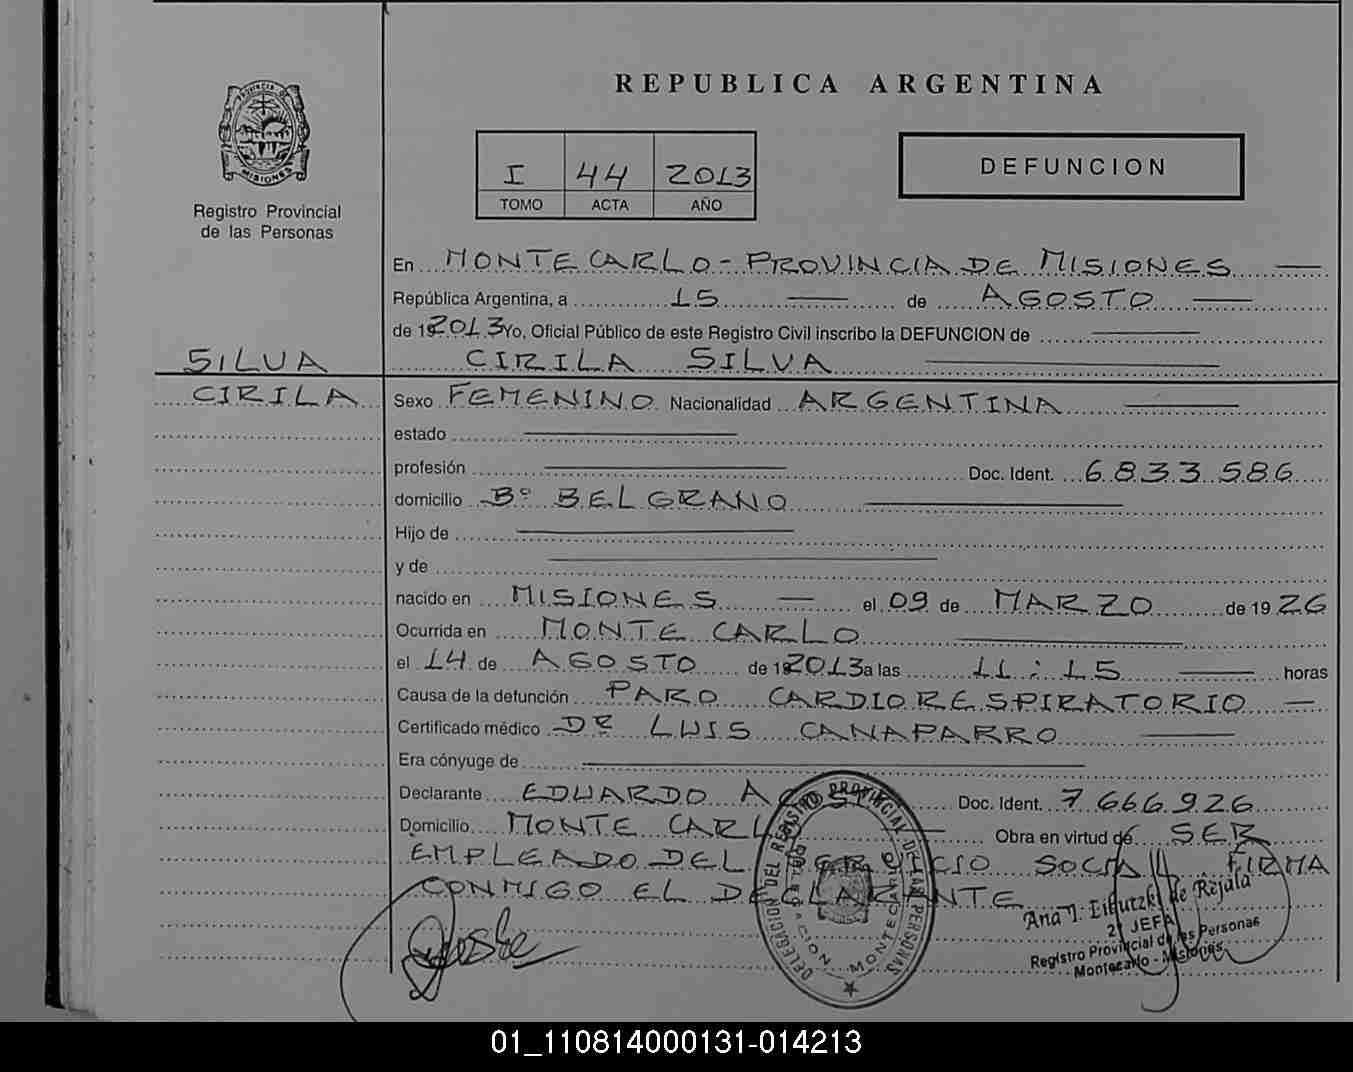 REPUBLICA ARGENTINA
PROVINCIA DE
MISIONES
Registro Provincial
de las Personas
I 44 2013
TOMO ACTA AÑO
DEFUNCION
En MONTECARLO - PROVINCIA DE MISIONES
República Argentina, a 15 de AGOSTO
de 19 2013 Yo, Oficial Público de este Registro Civil inscribo la DEFUNCION de
SILVA
CIRILA
CIRILA SILVA
Sexo FEMENINO Nacionalidad ARGENTINA
estado
profesión Doc. Ident. 6.833.586
domicilio Bº BELGRANO
Hijo de
y de
nacido en MISIONES el 09 de MARZO de 19 26
Ocurrida en MONTE CARLO
el 14 de AGOSTO de 19 2013 a las 11:15 horas
Causa de la defunción PARO CARDIORESPIRATORIO
Certificado médico Dr LUIS CANAPARRO
Era cónyuge de
Declarante EDUARDO Doc. Ident. 7.666.926
Domicilio MONTE CARLO Obra en virtud de SER
EMPLEADO DEL SERVICIO SOCIAL FIRMA
CONMIGO EL DECLARANTE
DELEGACION DEL REGISTRO PROVINCIAL DE LAS PERSONAS
MONTECARLO
Ana J. de Rejala
2º JEFA
Registro Provincial de las Personas
Montecarlo - Misiones
01_110814000131-014213